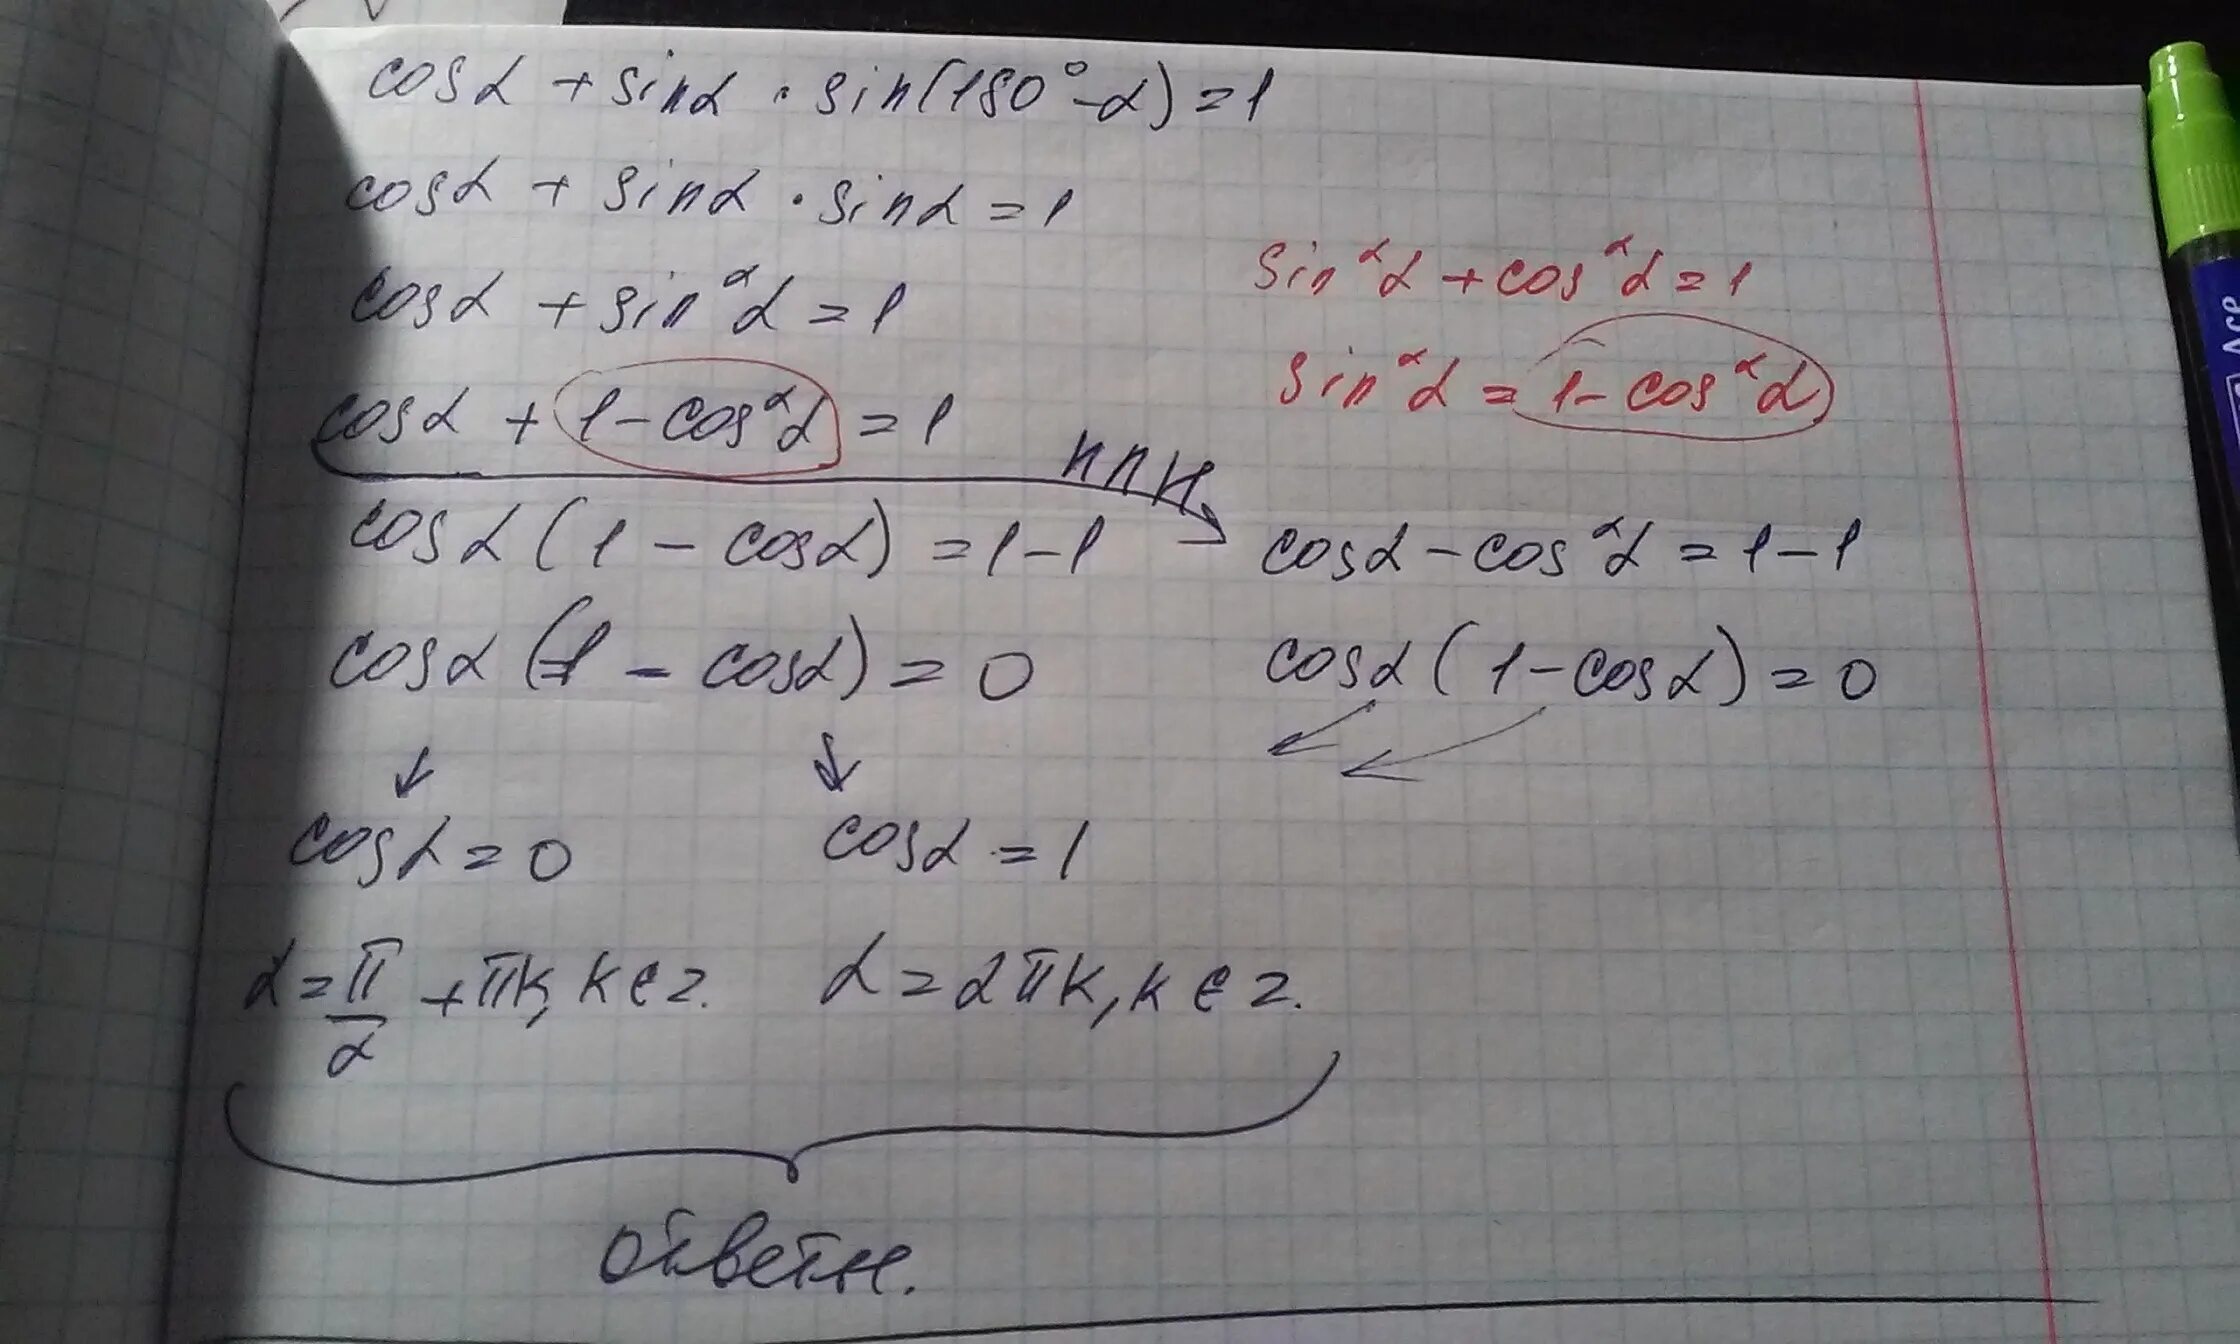 cosα + sinα · sin(180° - α) = 1
cosα + sinα · sinα = 1
cosα + sin²α = 1
cosα + 1 - cos²α = 1
sin²α + cos²α = 1
sin²α = 1 - cos²α
или
cosα (1 - cosα) = 1 - 1
cosα - cos²α = 1 - 1
cosα (1 - cosα) = 0
cosα (1 - cosα) = 0
cosα = 0
cosα = 1
α = π/2 + πk, k ∈ z.
α = 2πk, k ∈ z.
ответы.